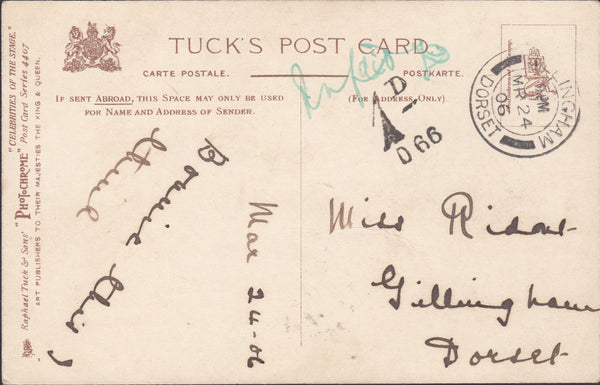 TUCK'S POST CARD.
CARTE POSTALE. POSTKARTE.
IF SENT ABROAD, THIS SPACE MAY ONLY BE USED
FOR NAME AND ADDRESS OF SENDER.
(FOR ADDRESS ONLY.)
"CELEBRITIES OF THE STAGE."
Raphael Tuck & Sons' "PHOTOCHROME" Post Card Series 4407
ART PUBLISHERS TO THEIR MAJESTIES THE KING & QUEEN.
1D
A
D66
INGHAM
PM
MR 24
06
DORSET
this
time
Mar 24-06
Miss Ridout
Gillingham
Dorset